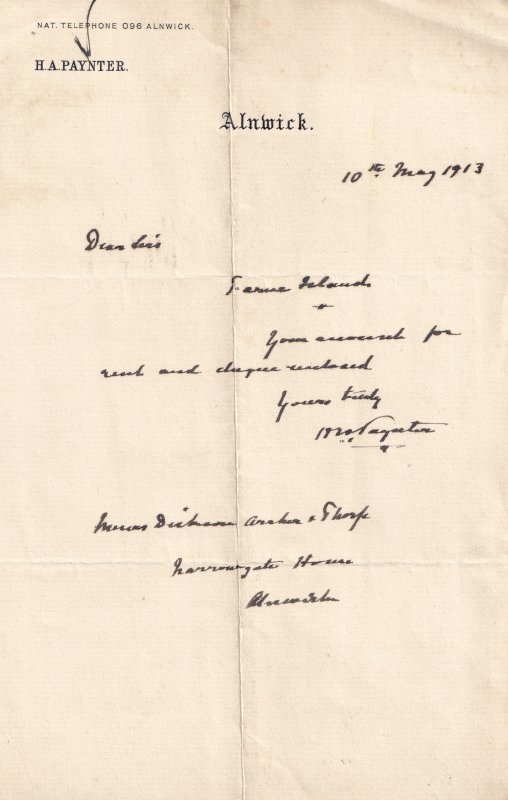 NAT. TELEPHONE 096 ALNWICK.
H. A. PAYNTER.
Alnwick.
10th May 1913
Dear Sirs
Farne Islands
Your account for
rent and cheque enclosed
Yours truly
H A Paynter
Messrs Dickson Archer & Thorp
Narrowgate House
Alnwick